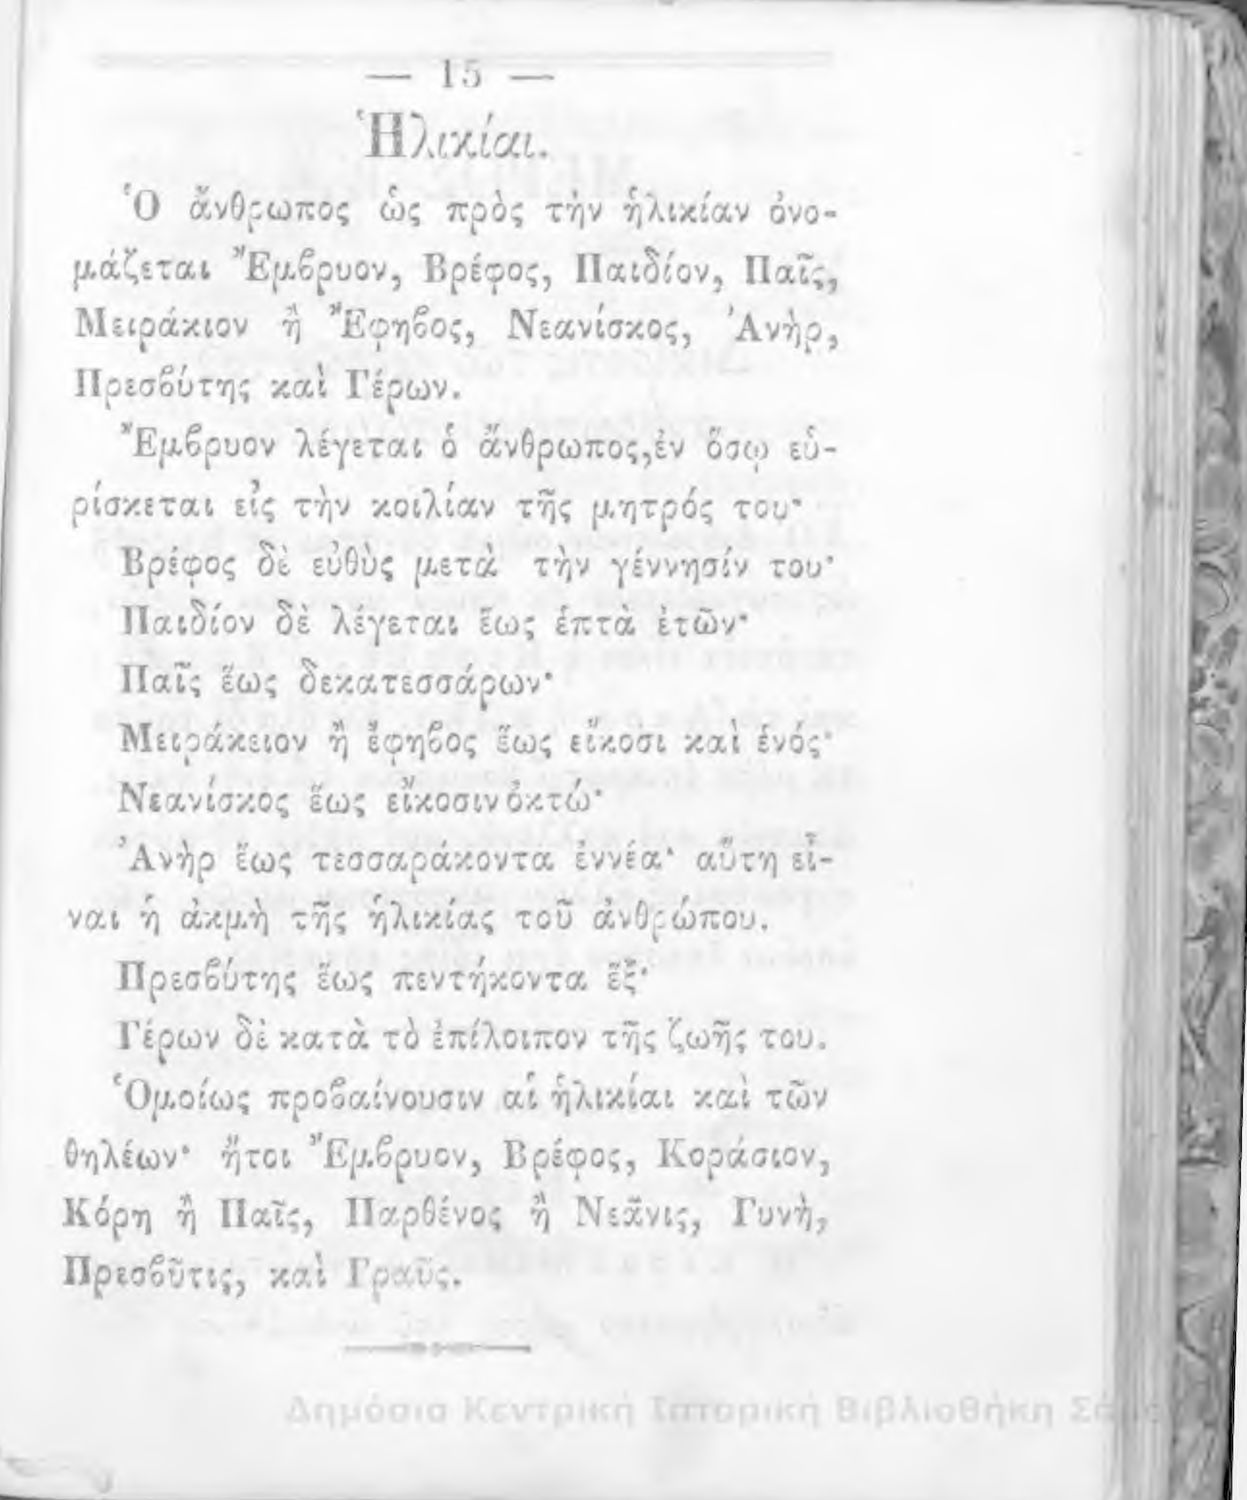 — 15 —
Ἡλικίαι.
Ὁ ἄνθρωπος ὡς πρὸς τὴν ἡλικίαν ὀνο-
μάζεται Ἔμβρυον, Βρέφος, Παιδίον, Παῖς,
Μειράκιον ἢ Ἔφηβος, Νεανίσκος, Ἀνὴρ,
Πρεσβύτης καὶ Γέρων.
Ἔμβρυον λέγεται ὁ ἄνθρωπος,ἐν ὅσῳ εὑ-
ρίσκεται εἰς τὴν κοιλίαν τῆς μητρός του·
Βρέφος δὲ εὐθὺς μετὰ τὴν γέννησίν του·
Παιδίον δὲ λέγεται ἕως ἑπτὰ ἐτῶν·
Παῖς ἕως δεκατεσσάρων·
Μειράκειον ἢ ἔφηβος ἕως εἴκοσι καὶ ἑνός·
Νεανίσκος ἕως εἴκοσιν ὀκτώ·
Ἀνὴρ ἕως τεσσαράκοντα ἐννέα· αὕτη εἶ-
ναι ἡ ἀκμὴ τῆς ἡλικίας τοῦ ἀνθρώπου.
Πρεσβύτης ἕως πεντήκοντα ἕξ·
Γέρων δὲ κατὰ τὸ ἐπίλοιπον τῆς ζωῆς του.
Ὁμοίως προβαίνουσιν αἱ ἡλικίαι καὶ τῶν
θηλέων· ἤτοι Ἔμβρυον, Βρέφος, Κοράσιον,
Κόρη ἢ Παῖς, Παρθένος ἢ Νεᾶνις, Γυνὴ,
Πρεσβῦτις, καὶ Γραῦς.
Δημόσια Κεντρική Ιστορική Βιβλιοθήκη